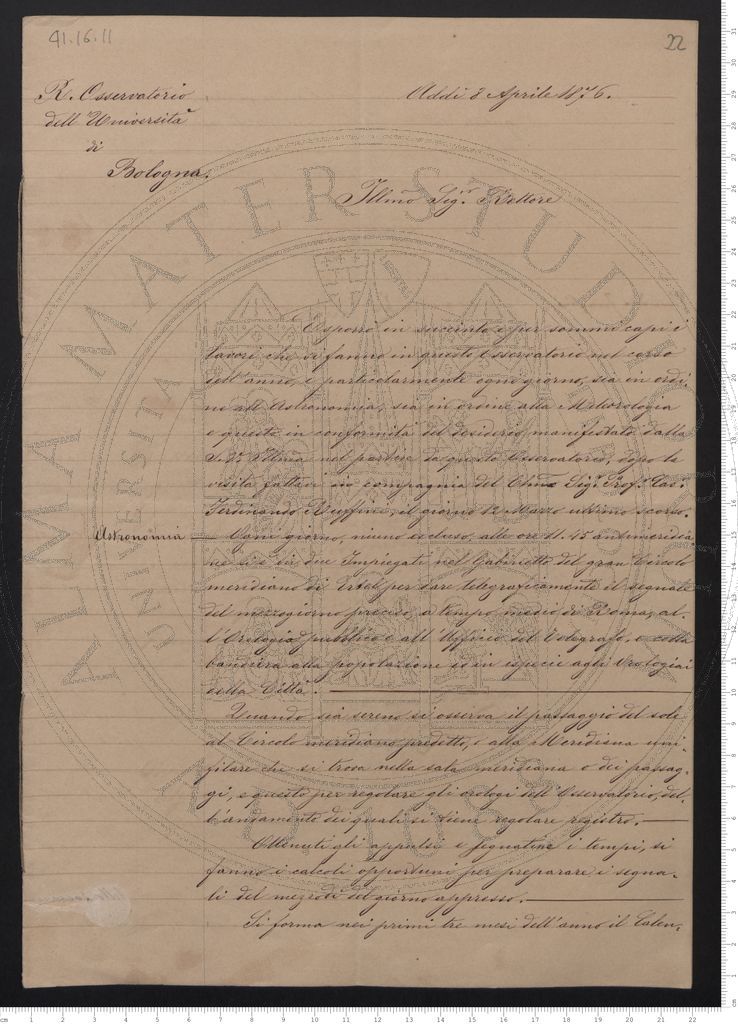 41.16.11
22
R. Osservatorio
dell'Università
di
Bologna.
Addì 8 Aprile 1876.
Illmo Sigr. Rettore
Esporrò in succinto e per sommi capi i
lavori che si fanno in questo Osservatorio nel corso
dell'anno, e particolarmente ogni giorno, sia in ordi
ne all'Astronomia, sia in ordine alla Meteorologia
e questo in conformità del desiderio manifestato dalla
S. V. Illma nel partire da questo Osservatorio, dopo la
visita fattavi in compagnia del Chmo Sigr. Profr. Cavr.
Ferdinando Ruffini, il giorno 12 Marzo ultimo scorso.
Astronomia — Ogni giorno, niuno escluso, alle ore 11.45 antimeridia
ne vi è due Impiegati nel Gabinetto del gran Circolo
meridiano di Ertel per dare telegraficamente il segnale
del mezzogiorno preciso, a tempo medio di Roma, al-
l'Orologio pubblico e all'Uffizio del Telegrafo, e colla
bandiera alla popolazione ed in ispecie agli Orologiai
della Città.
Quando sia sereno si osserva il passaggio del sole
al Circolo meridiano predetto, e alla Meridiana uni-
filare che si trova nella sala meridiana o dei passag-
gi, e questo per regolare gli orologi dell'Osservatorio, del-
l'andamento dei quali si tiene regolare registro.
Ottenuti gli appulsi e segnatine i tempi, si
fanno i calcoli opportuni per preparare i segna-
li del mezzodì del giorno appresso.
Si forma nei primi tre mesi dell'anno il Calen-
ALMA MATER STUDIORUM
UNIVERSITÀ
A.D. 1088